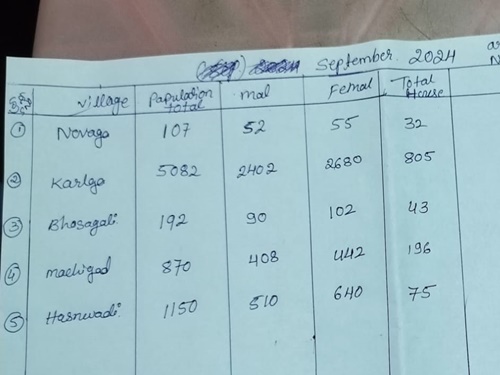 September. 2024
Village Population Total mal Femal Total House
1 Novago 107 52 55 32
2 Karlgo 5082 2402 2680 805
3 Bhosagali 192 90 102 43
4 machigad 870 408 442 196
5 Hasnwadi 1150 510 640 75